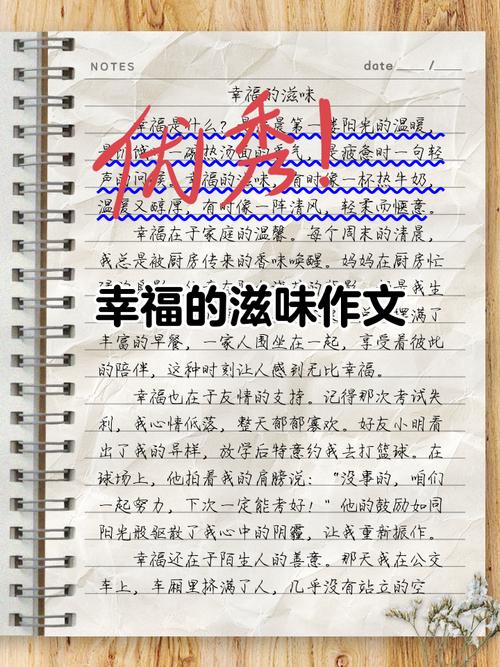 NOTES date ____ / ____
幸福的滋味
优秀！
幸福是什么？是 晨第一缕阳光的温暖，
是 饿 一碗热汤面的香气，是疲惫时一句轻
声的问候。幸福的滋味，有时像一杯热牛奶，
温暖又醇厚，有时像一阵清风，轻柔而惬意。
幸福在于家庭的温馨。每个周末的清晨，
我总是被厨房传来的香味唤醒。妈妈在厨房忙
是我生
幸福的滋味作文
摆满了
丰富的早餐，一家人围坐在一起，享受着彼此
的陪伴，这种时刻让人感到无比幸福。
幸福也在于友情的支持。记得那次考试失
利，我心情低落，整天郁郁寡欢。好友小明看
出了我的异样，放学后特意约我去打篮球。在
球场上，他拍着我的肩膀说：“没事的，咱们
一起努力，下次一定能考好！”他的鼓励如同
阳光般驱散了我心中的阴霾，让我重新振作。
幸福还在于陌生人的善意。那天我在公交
车上，车厢里挤满了人，几乎没有站立的空